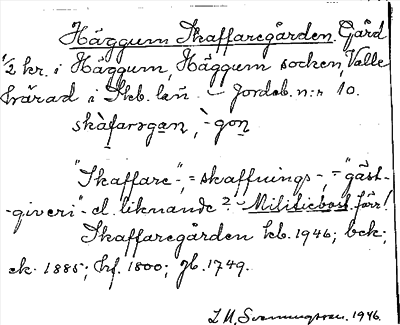 Häggum Skaffaregården. Gård
1/2 kr. i Häggum, Häggum socken, Valle
härad i Skb. län. – Jordeb. n:r 10.
skàfarəgan, `-gon
"Skaffare-", = skaffnings-, = "gäst-
-giveri" - el. liknande? - Militiebost. förr!
Skaffaregården kb. 1946; bek;
ek. 1885; hf. 1800; jb. 1749.
1946.